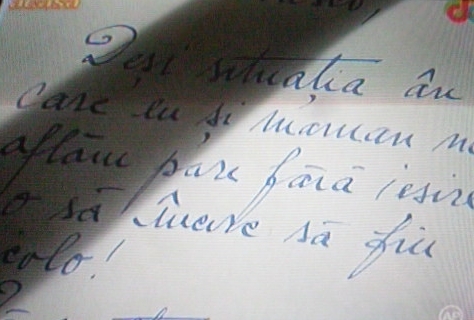 acasa
Deși situația ân
care eu și maman n
aflăm pare fără ieșire
o să încerc să fiu
colo!
AP